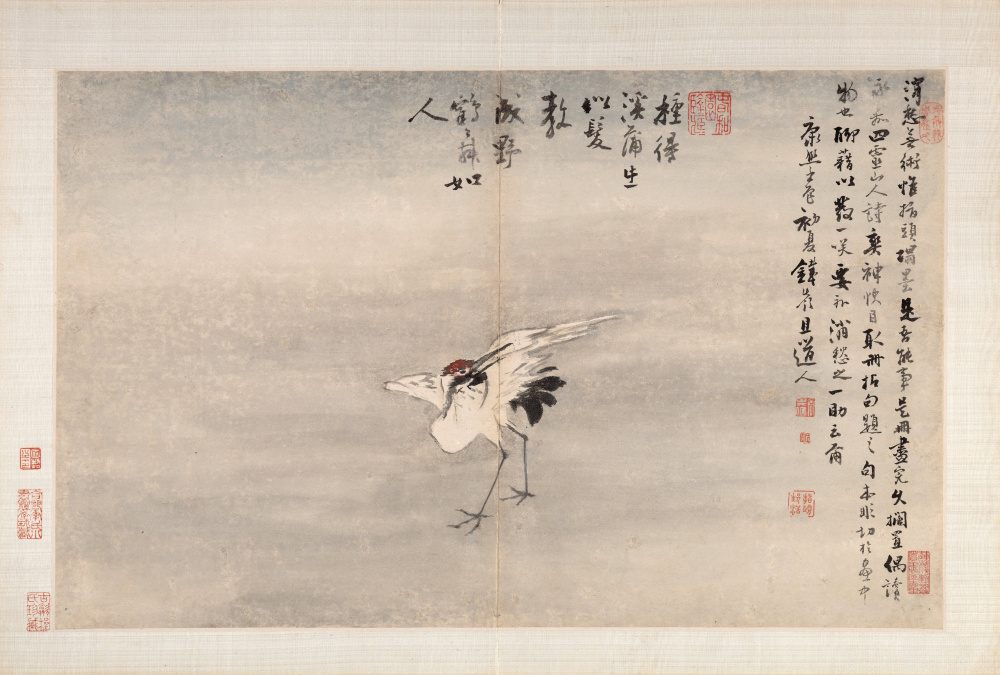 消愁無術惟指頭塌墨是吾能事是冊畫完久擱置偶讀
永嘉四靈山人詩爽神悅目取冊拈句題之句本非切於畫中
物也聊藉以發一咲要亦消愁之一助云爾
康熙初夏鐵嶺且道人
種得
溪蒲生
似髮
教
成野
鶴舞如
人